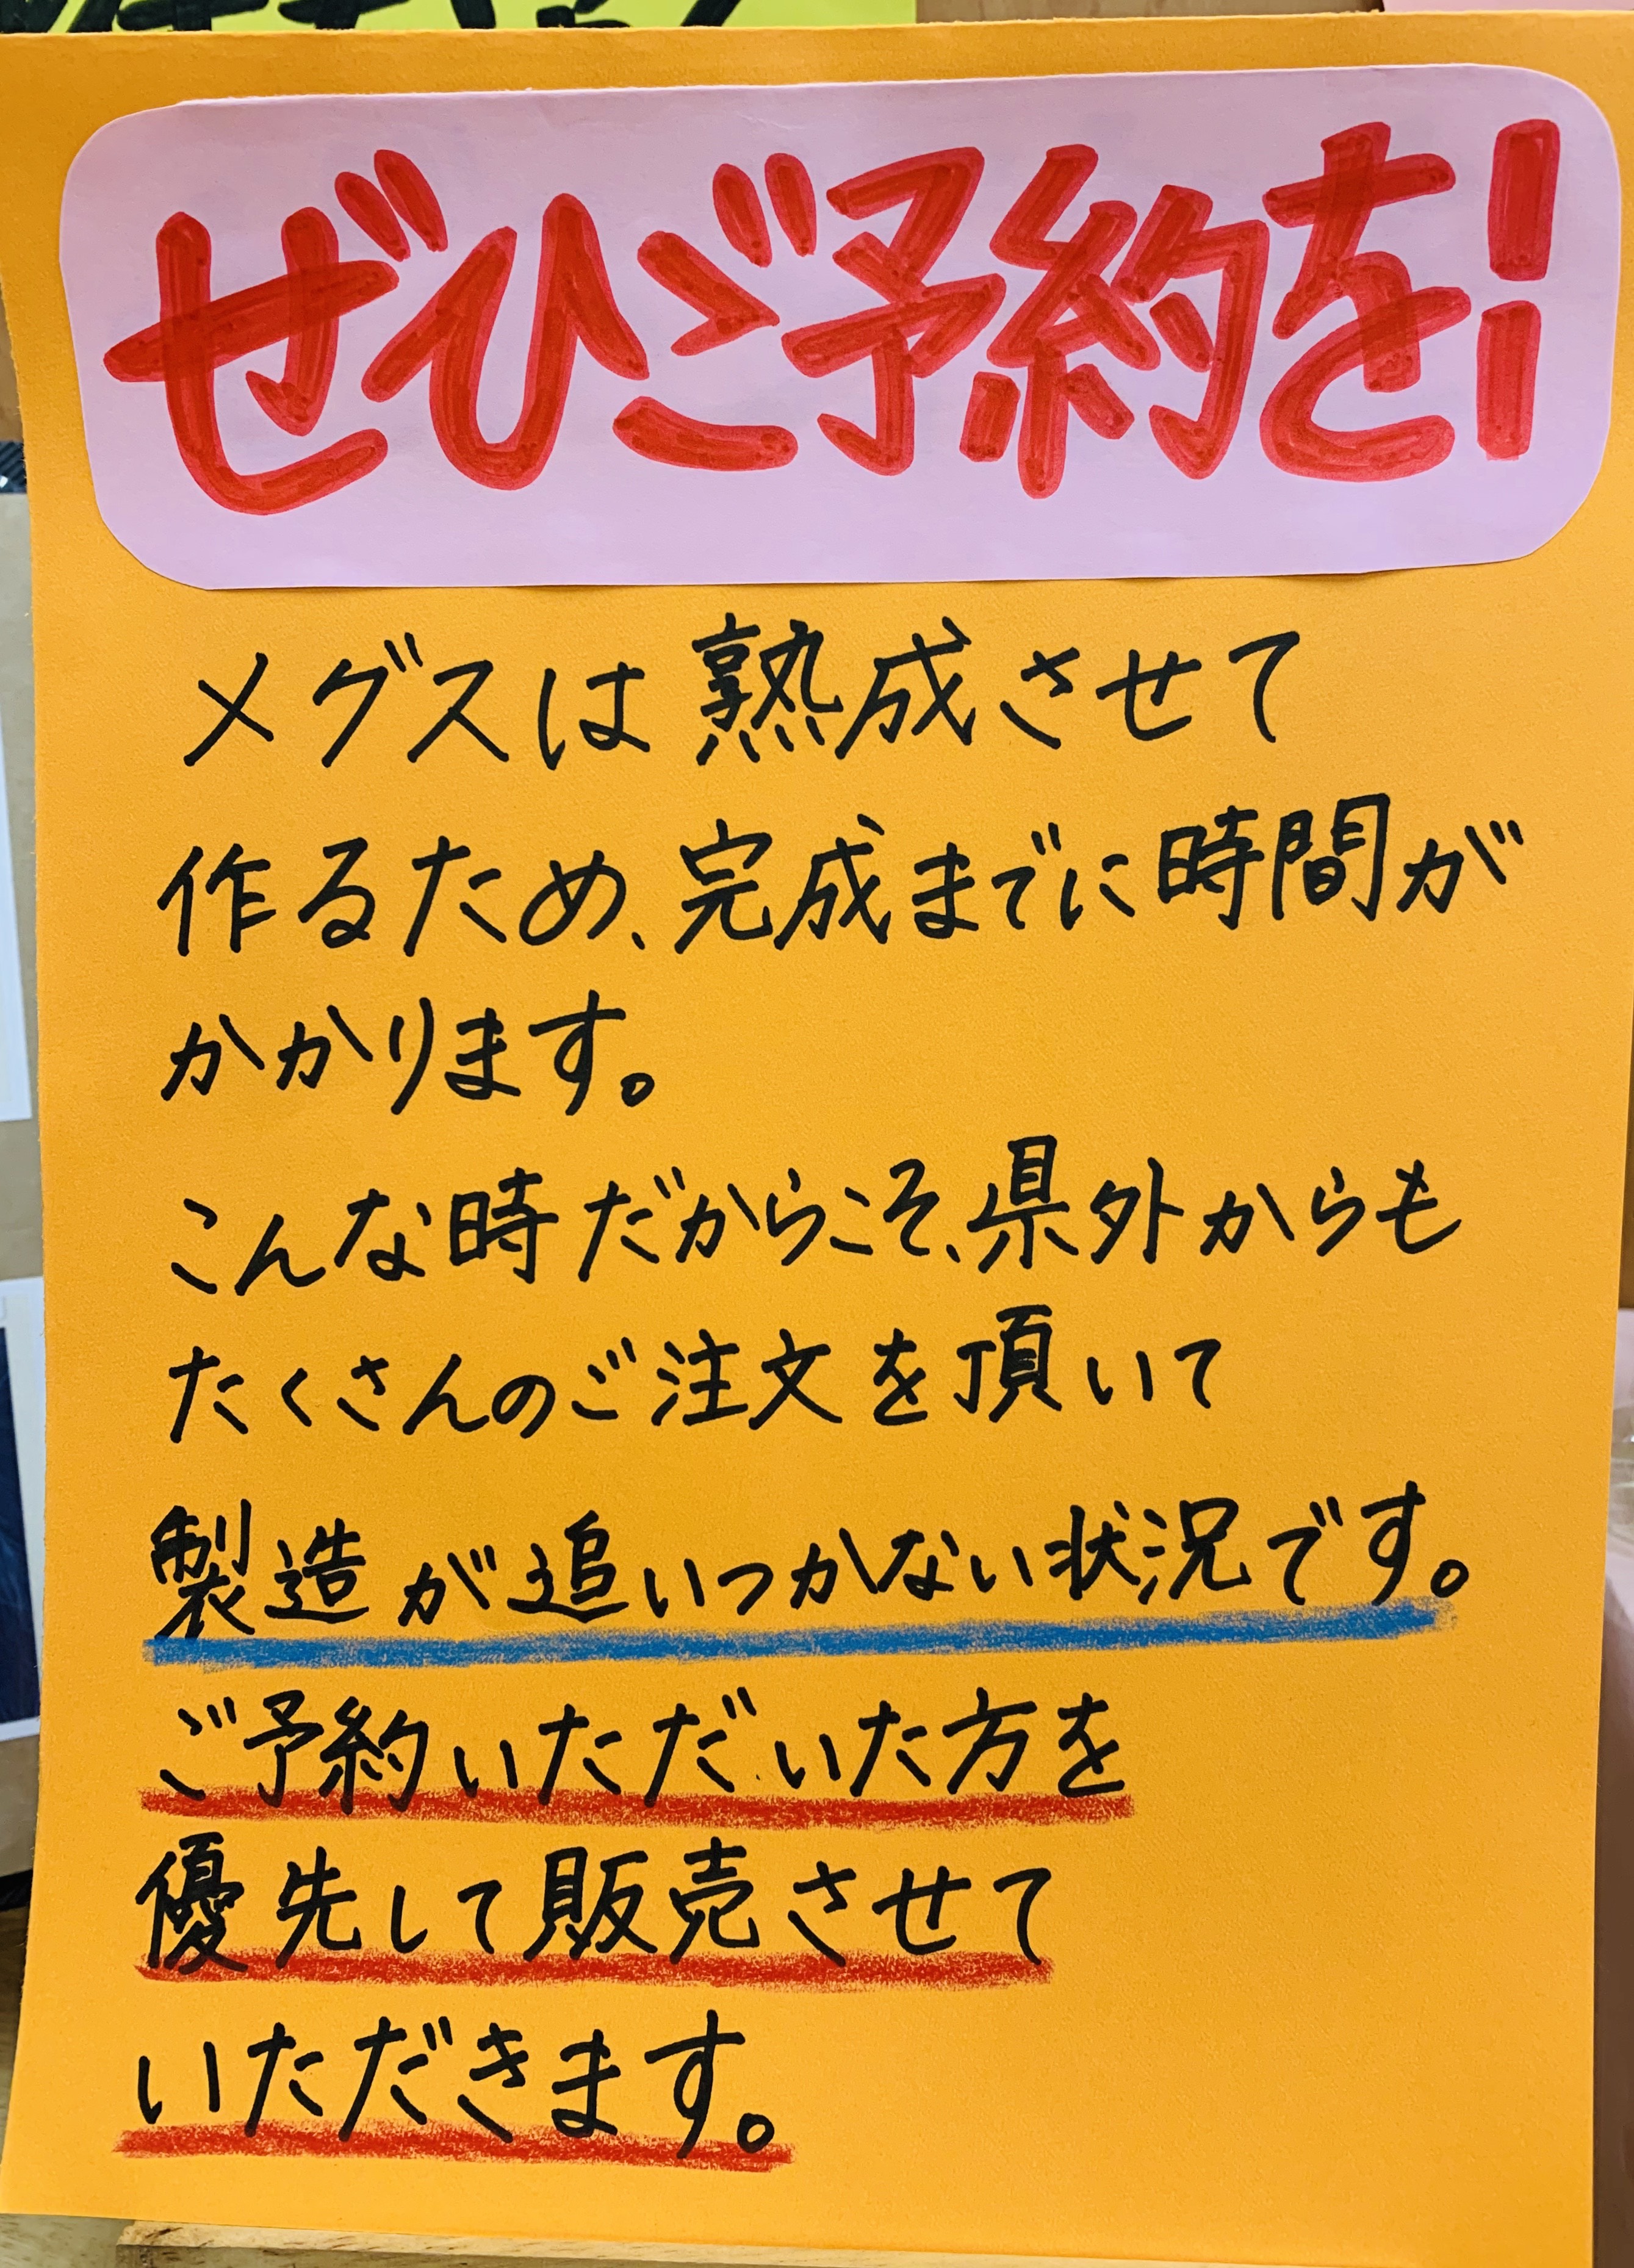 ぜひご予約を!
メグスは熟成させて
作るため、完成までに時間が
かかります。
こんな時だからこそ、県外からも
たくさんのご注文を頂いて
製造が追いつかない状況です。
ご予約いただいた方を
優先して販売させて
いただきます。